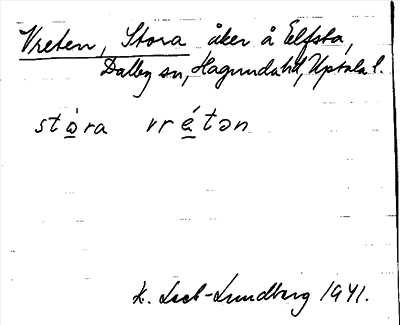 Vreten, Stora åker å Elfsta,
Dalby sn, Hagunda hd, Uppsala l.
stò̱ra vré̱tən
K. Leeb-Lundberg 1941.